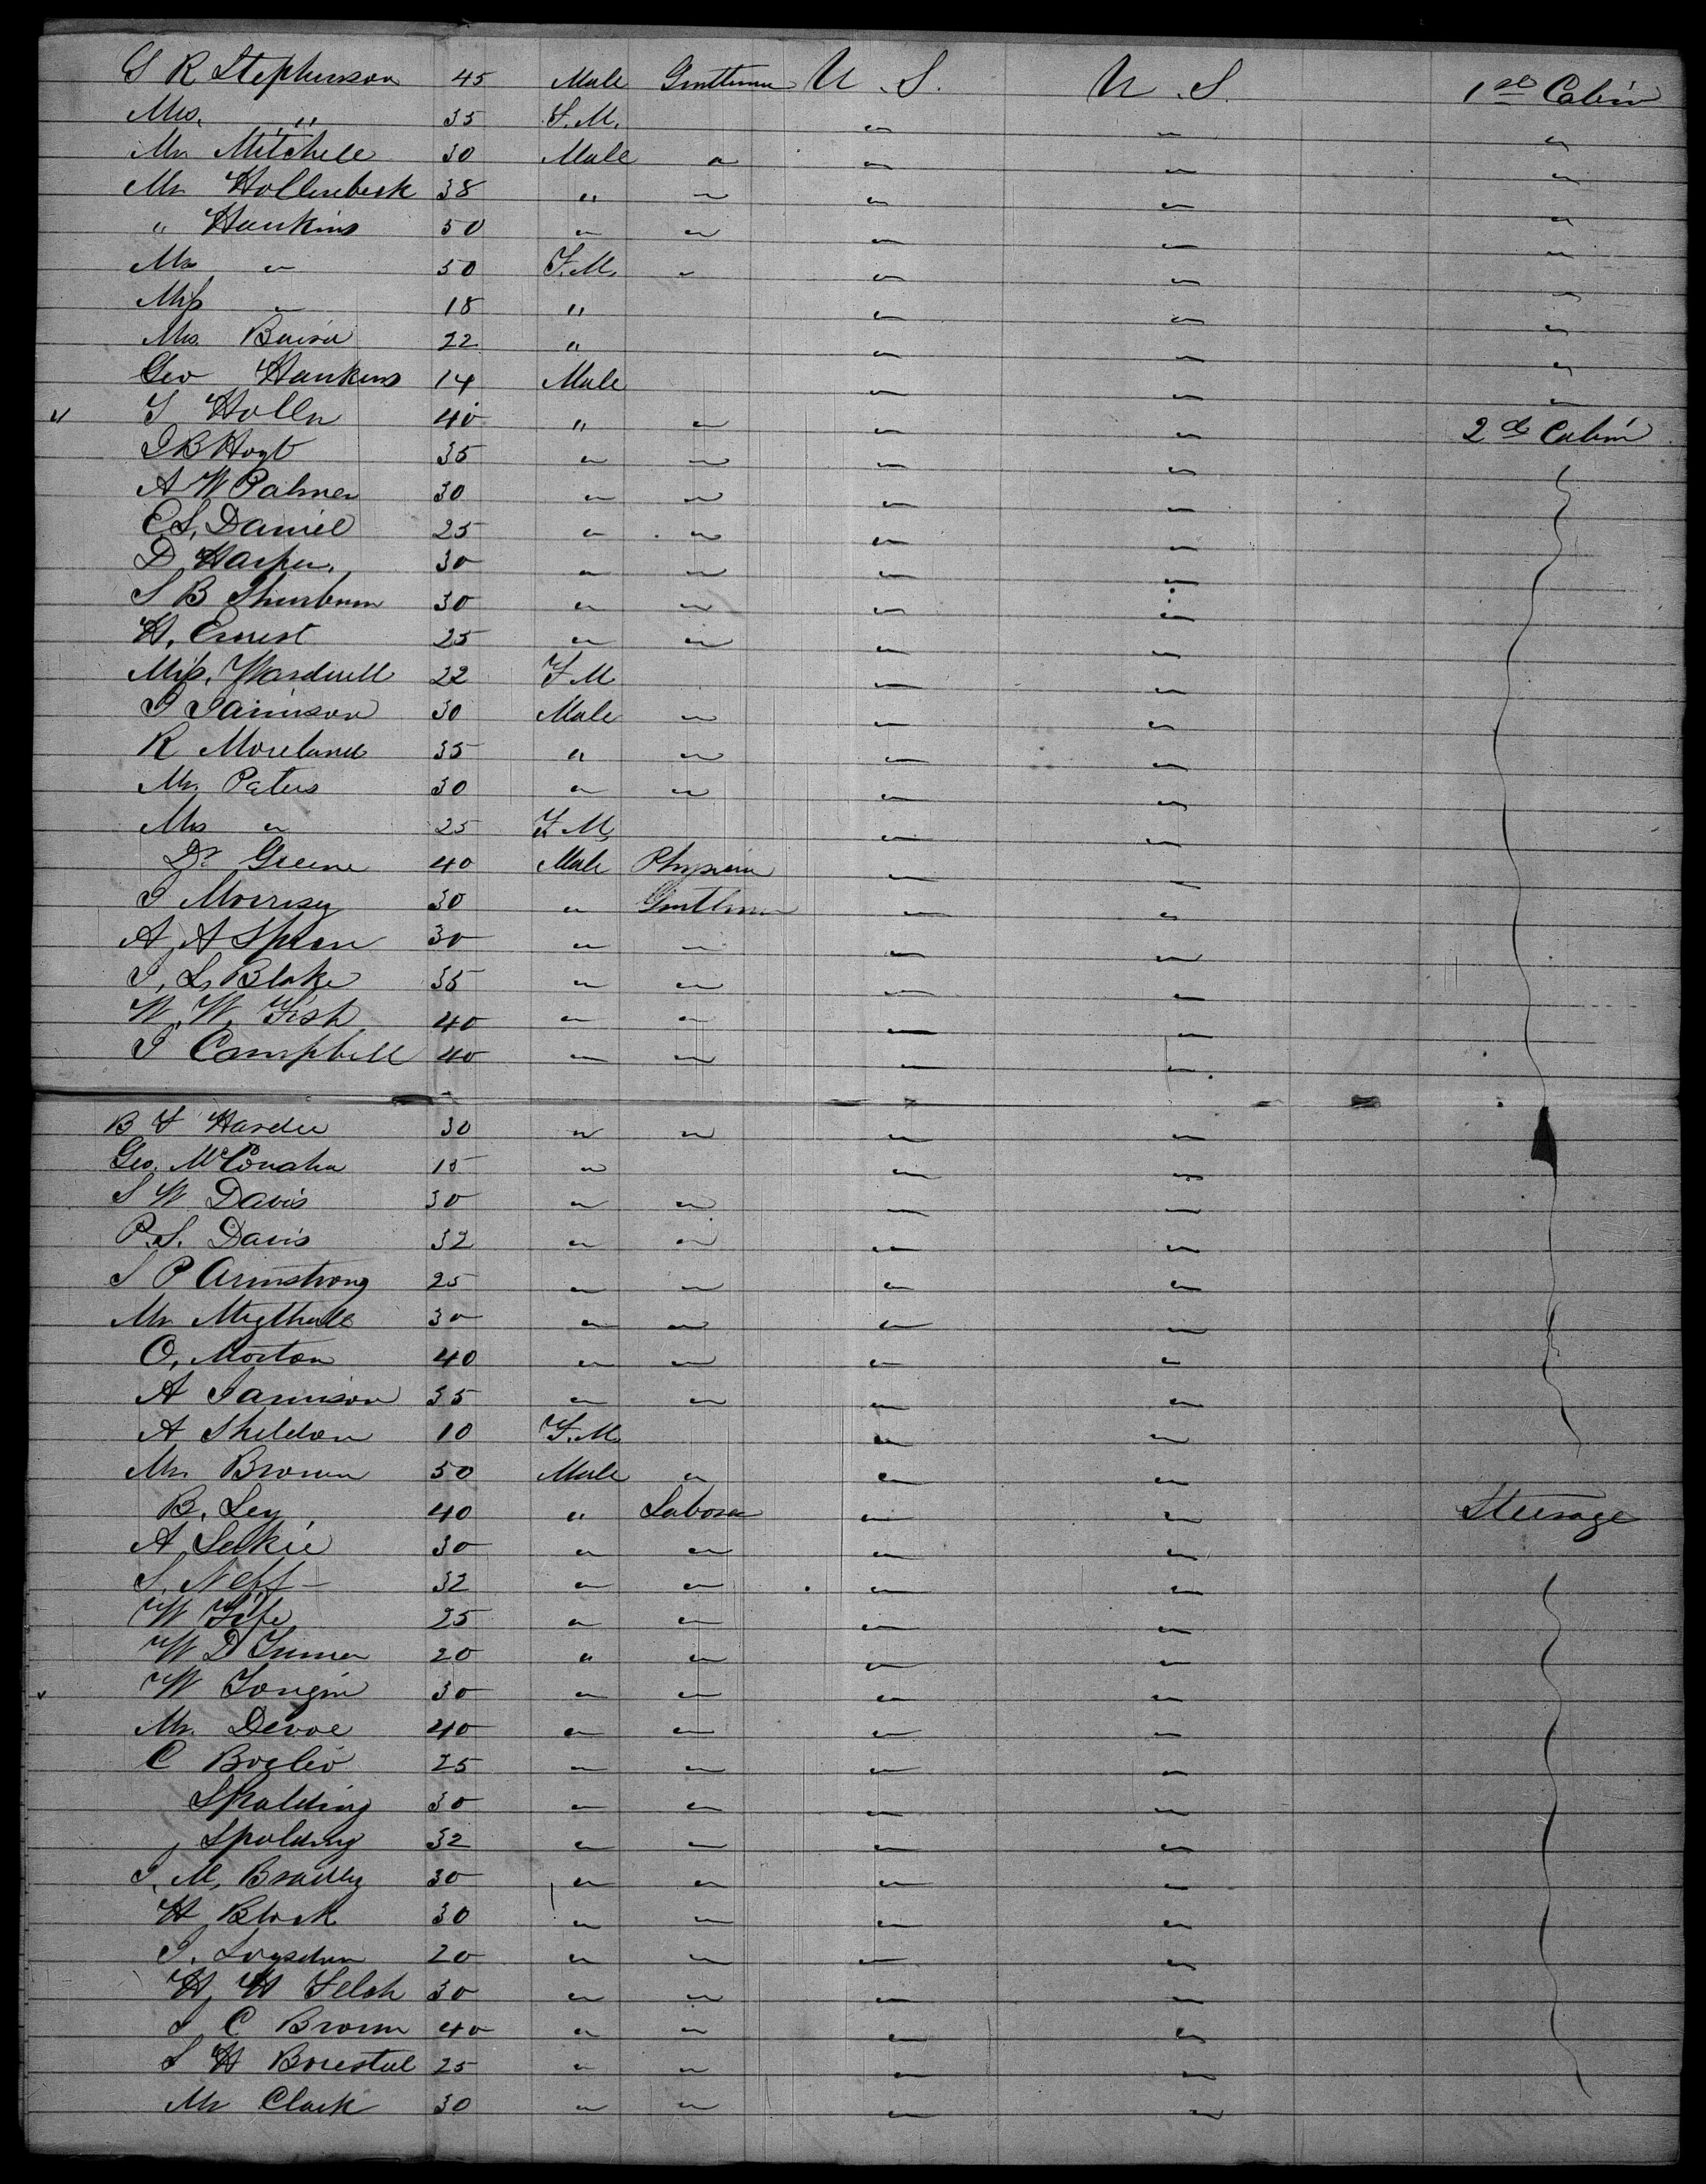 G R Stephenson 45 Male Gentleman U.S. U.S. 1st Cabin
Mrs. " 35 F.M. " " "
Mr Mitchell 30 Male " " " "
Mr Hollenbeck 38 " " " " "
" Hankins 50 " " " " "
Mrs " 50 F.M. " " " "
Miss " 18 " " " "
Mrs. 22 " " " "
Geo Hankins 14 Male " " "
40 " " " " 2d Cabin
Hoyt 35 " " " "
A W Palmer 30 " " " "
C.S. Daniel 25 " " " "
D Harper 30 " " " "
S B 30 " " " "
H. Ernest 25 " " " "
Miss. Wardwell 22 F M " "
J Jamison 30 Male " " "
R Moreland 35 " " " "
Mr. Peters 30 " " " "
Mrs " 25 F.M. " "
Dr. Greene 40 Male Physician " "
J Morrisey 30 " Gentleman " "
A, A 30 " " " "
J, L, Blake 35 " " " "
W. W. Fish 40 " " " "
J Campbell 40 " " " "
B F Hardee 30 " " " "
Geo. 15 " " "
S W Davis 30 " " " "
P.S. Davis 32 " " " "
S P Armstrong 25 " " " "
Mr 30 " " " "
O, Morton 40 " " " "
A Jamison 35 " " " "
A Sheldon 10 F.M. " "
Mr. Brown 50 Male " " "
B. Ley 40 " Laborer " " Steerage
A 30 " " " "
S. Neff 32 " " " "
W Fife 25 " " " "
W D 20 " " " "
W 30 " " " "
Mr. Devoe 40 " " " "
C 25 " " " "
Spalding 30 " " " "
Spalding 32 " " " "
J. M, Bradley 30 " " " "
H Block 30 " " " "
J. Logsdon 20 " " " "
H, H Felch 30 " " " "
J C Brown 40 " " " "
S H 25 " " " "
Mr Clark 30 " " " "